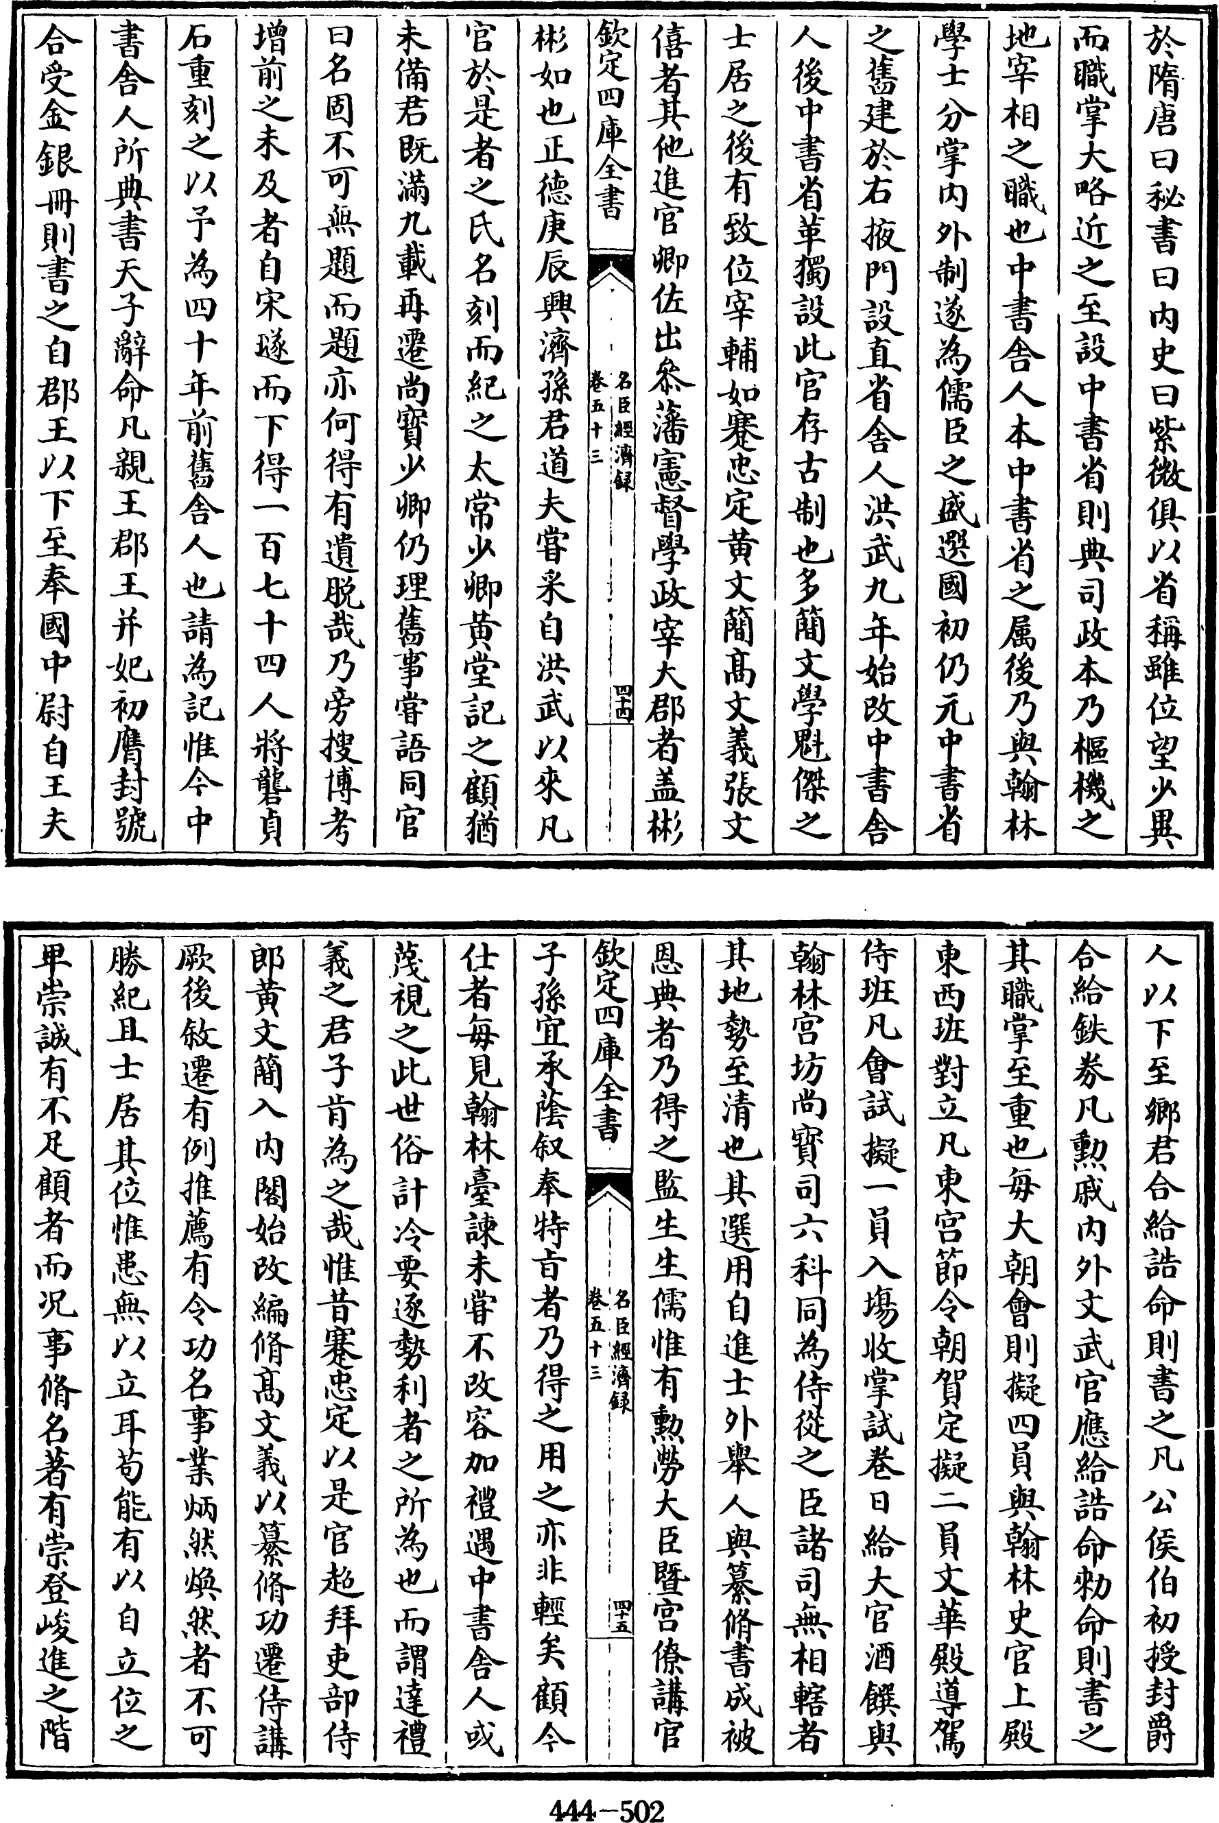 於隋唐曰秘書曰内史曰紫微俱以省稱雖位望少異
而職掌大略近之至設中書省則典司政本乃樞機之
地宰相之職也中書舍人本中書省之属後乃與翰林
學士分掌内外制遂為儒臣之盛選國初仍元中書省
之舊建於右掖門設直省舍人洪武九年始改中書舍
人後中書省革獨設此官存古制也多簡文學魁傑之
士居之後有致位宰輔如蹇忠定黄文簡髙文義張文
僖者其他進官卿佐出叅藩憲督學政宰大郡者盖彬
欽定四庫全書
名臣經濟録
卷五十三
四十四
彬如也正德庚辰興濟孫君道夫嘗采自洪武以來凡
官於是者之氏名刻而紀之太常少卿黄堂記之顧猶
未備君既滿九載再遷尚寳少卿仍理舊事嘗語同官
曰名固不可無題而題亦何得有遺脱哉乃旁搜博考
增前之未及者自宋璲而下得一百七十四人將礱貞
石重刻之以予為四十年前舊舍人也請為記惟今中
書舍人所典書天子辭命凡親王郡王并妃初膺封號
合受金銀冊則書之自郡王以下至奉國中尉自王夫
人以下至鄉君合給誥命則書之凡公侯伯初授封爵
合給鉄券凡勲戚内外文武官應給誥命勑命則書之
其職掌至重也毎大朝會則擬四員與翰林史官上殿
東西班對立凡東宫節令朝賀定擬二員文華殿導駕
侍班凡會試擬一員入塲收掌試卷日給大官酒饌與
翰林宫坊尚寳司六科同為侍從之臣諸司無相轄者
其地勢至清也其選用自進士外舉人與纂脩書成被
恩典者乃得之監生生儒惟有勲勞大臣暨宫僚講官
欽定四庫全書
名臣經濟録
卷五十三
四十五
子孫宜承蔭叙奉特㫖者乃得之用之亦非輕矣顧今
仕者毎見翰林臺諫未嘗不改容加禮遇中書舍人或
蔑視之此世俗計冷要逐勢利者之所為也而謂達禮
義之君子肯為之哉惟昔蹇忠定以是官超拜吏部侍
郎黄文簡入内閣始改編脩髙文義以纂脩功遷侍講
厥後敘遷有例推薦有令功名事業炳然煥然者不可
勝紀且士居其位惟患無以立耳苟能有以自立位之
卑崇誠有不足顧者而况事脩名著有崇登峻進之階
444-502